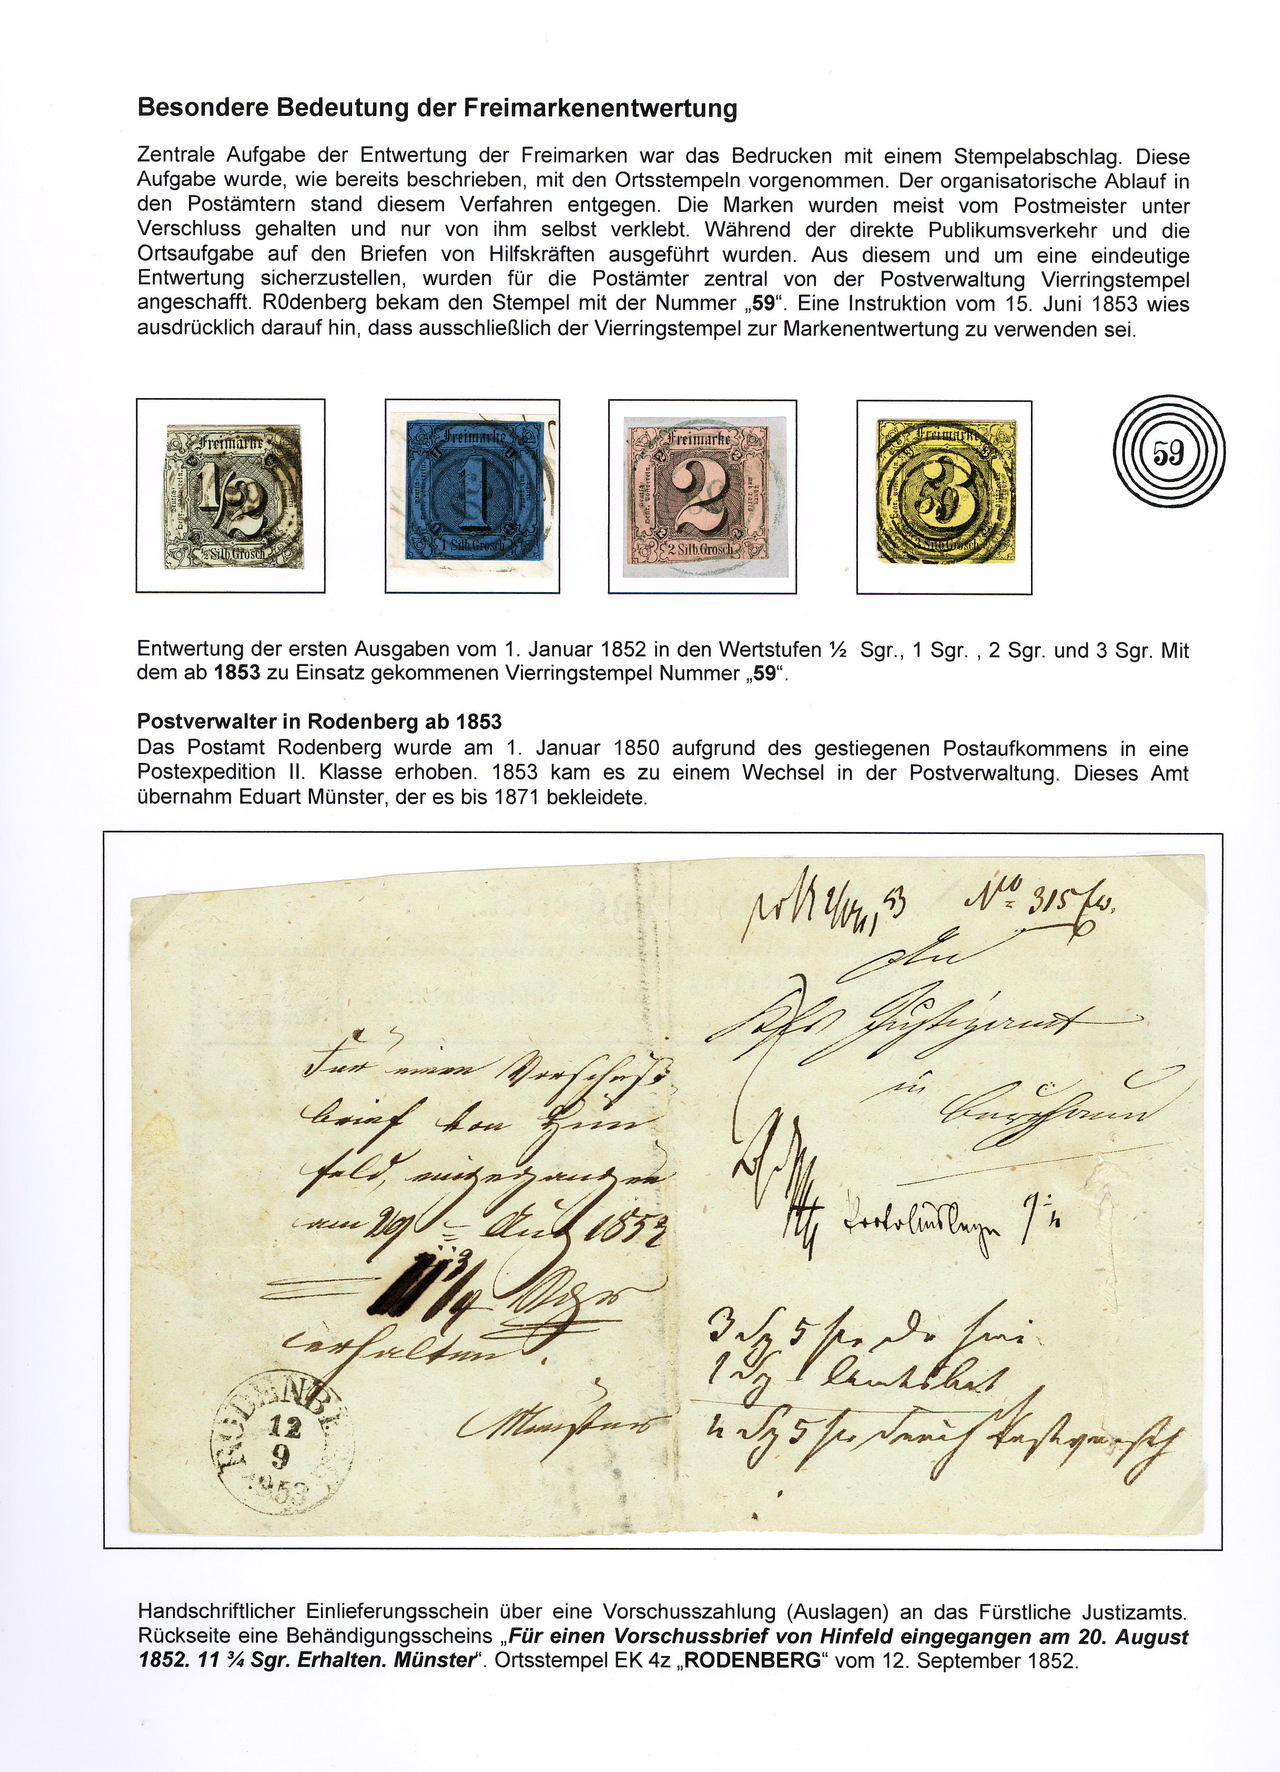 Besondere Bedeutung der Freimarkenentwertung
Zentrale Aufgabe der Entwertung der Freimarken war das Bedrucken mit einem Stempelabschlag. Diese
Aufgabe wurde, wie bereits beschrieben, mit den Ortsstempeln vorgenommen. Der organisatorische Ablauf in
den Postämtern stand diesem Verfahren entgegen. Die Marken wurden meist vom Postmeister unter
Verschluss gehalten und nur von ihm selbst verklebt. Während der direkte Publikumsverkehr und die
Ortsaufgabe auf den Briefen von Hilfskräften ausgeführt wurden. Aus diesem und um eine eindeutige
Entwertung sicherzustellen, wurden für die Postämter zentral von der Postverwaltung Vierringstempel
angeschafft. R0denberg bekam den Stempel mit der Nummer „59“. Eine Instruktion vom 15. Juni 1853 wies
ausdrücklich darauf hin, dass ausschließlich der Vierringstempel zur Markenentwertung zu verwenden sei.
Freimarke
1/2
½ Silb.Grosch
Freimarke
1
1 Silb.Grosch
Freimarke
2
2 Silb.Grosch
Freimarke
3
59
Silb.Grosch
59
Entwertung der ersten Ausgaben vom 1. Januar 1852 in den Wertstufen ½ Sgr., 1 Sgr. , 2 Sgr. und 3 Sgr. Mit
dem ab 1853 zu Einsatz gekommenen Vierringstempel Nummer „59“.
Postverwalter in Rodenberg ab 1853
Das Postamt Rodenberg wurde am 1. Januar 1850 aufgrund des gestiegenen Postaufkommens in eine
Postexpedition II. Klasse erhoben. 1853 kam es zu einem Wechsel in der Postverwaltung. Dieses Amt
übernahm Eduart Münster, der es bis 1871 bekleidete.
No 315
An
Justizamt
in
Burghaun
Für einen Vorschuß
brief von Hün
feld, eingegangen
am 29 Aug 1853
11 3/4 Sgr
erhalten.
Münster
RODENB
12
9
1853
3 Sg 5
1 Sg
4 Sg 5 durch Postvorsch
Handschriftlicher Einlieferungsschein über eine Vorschusszahlung (Auslagen) an das Fürstliche Justizamts.
Rückseite eine Behändigungsscheins „Für einen Vorschussbrief von Hinfeld eingegangen am 20. August
1852. 11 ¾ Sgr. Erhalten. Münster“. Ortsstempel EK 4z „RODENBERG“ vom 12. September 1852.